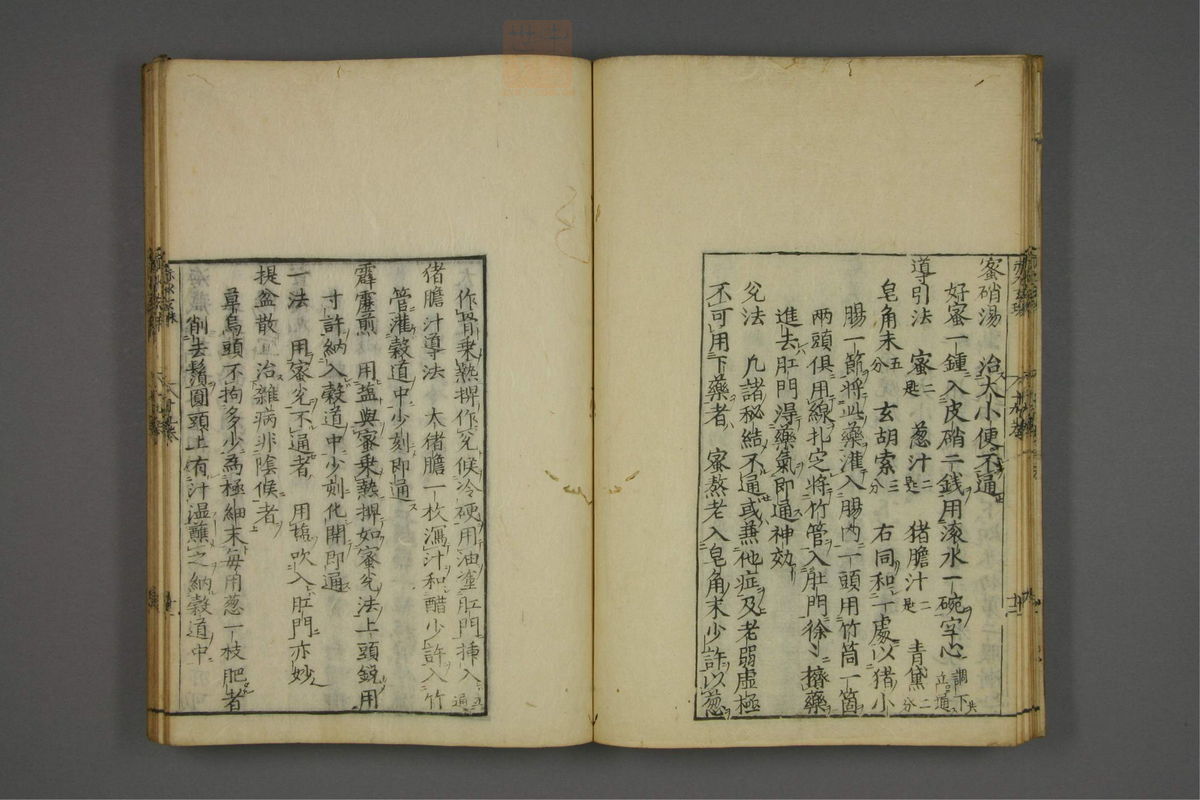 蜜硝湯　治大小便不通
好蜜一鍾入皮硝二銭用滚水一碗空心調下立通
導引法　蜜二匙　葱汁二匙　猪膽汁二匙　青黛二分
皂角末五分　玄胡索三分　右同和一處以猪小
腸一節将此藥灌入腸内一頭用竹筒一箇
兩頭俱用線扎定将竹管入肛門徐〻擠藥
進去肛門淂藥氣即通神効
兊法　凡諸秘結不通或兼他症及老弱虛極
不可用下藥者　蜜熬老入皂角末少許以葱
作骨乗熱捍作兊候冷硬用油塗肛門挿入
猪膽汁導法　大猪膽一枚瀉汁和醋少許入竹
管灌穀道中少刻即通
霹靂煎　用盐與蜜乗熱捍如蜜兊法上頭鋭用
寸許納入穀道中少刻化開即通
一法　用蜜兊不通者　用塩吹入肛門亦妙
提盆散　治雜病非陰候者
草烏頭不拘多少為極細末毎用葱一枝肥者
削去鬚圓頭上有汁温蘸之納穀道中